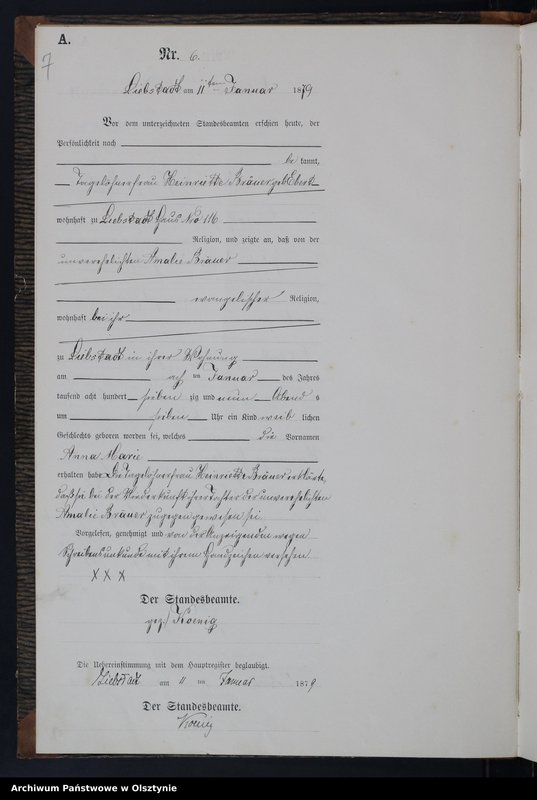 7
A.
Nr. 6.
Liebstadt am 11ten Januar 1879
Vor dem unterzeichneten Standesbeamten erschien heute, der
Persönlichkeit nach
be kannt,
Tagelöhnerfrau Heinriette Bräuer geb Ebert
wohnhaft zu Liebstadt Haus Nro 116
Religion, und zeigte an, daß von der
unverehelichten Amalie Bräuer
evangelischer Religion,
wohnhaft bei ihr
zu Liebstadt in ihrer Wohnung
am acht ten Januar des Jahres
tausend acht hundert sieben zig und neun Abend s
um sieben Uhr ein Kind weib lichen
Geschlechts geboren worden sei, welches die Vornamen
Anna Marie
erhalten habe Die Tagelöhnerfrau Heinriette Bräuer erklärte,
daß sie bei der Niederkunft ihrer Tochter der unverehelichten
Amalie Bräuer zugegen gewesen sei.
Vorgelesen, genehmigt und von der Anzeigenden wegen
Schreibensunkunde mit ihrem Handzeichen versehen
X X X
Der Standesbeamte.
gez/ Koenig
Die Uebereinstimmung mit dem Hauptregister beglaubigt.
Liebstadt am 11 ten Januar 1879
Der Standesbeamte.
Koenig
Archiwum Państwowe w Olsztynie